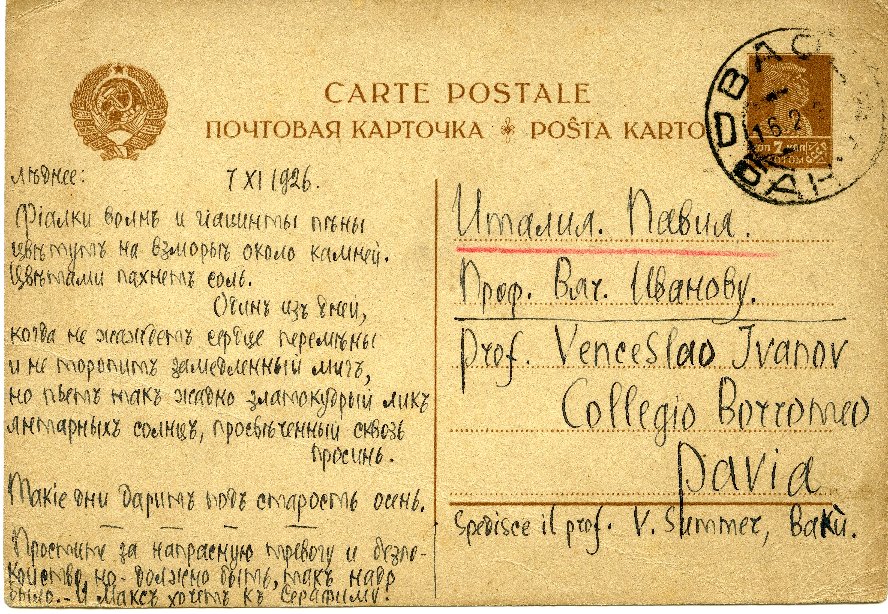 CARTE POSTALE
ПОЧТОВАЯ КАРТОЧКА POŜTA KARTO
7 XI 1926.
Фіалки волнъ и гіацинты пѣны
цвѣтутъ на взморьѣ около камней.
Цвѣтами пахнетъ соль.
Одинъ изъ дней,
когда не жаждетъ сердце перемѣны
и не торопитъ замедленный мигъ,
но пьетъ такъ жадно златокудрый ликъ
янтарныхъ солнцъ, просвѣченный сквозь
просинь.
Такіе дни даритъ подъ старость осень.
Простите за напрасную тревогу и безпо-
койство, но - должно быть, такъ надо
было. - И Максъ хочетъ къ Серафиму!
Италия. Павия.
Проф. Вяч. Иванову.
prof. Venceslao Ivanov
Collegio Borromeo
pavia
Spedisce il prof. V. Summer, Bakù.
7
15.2